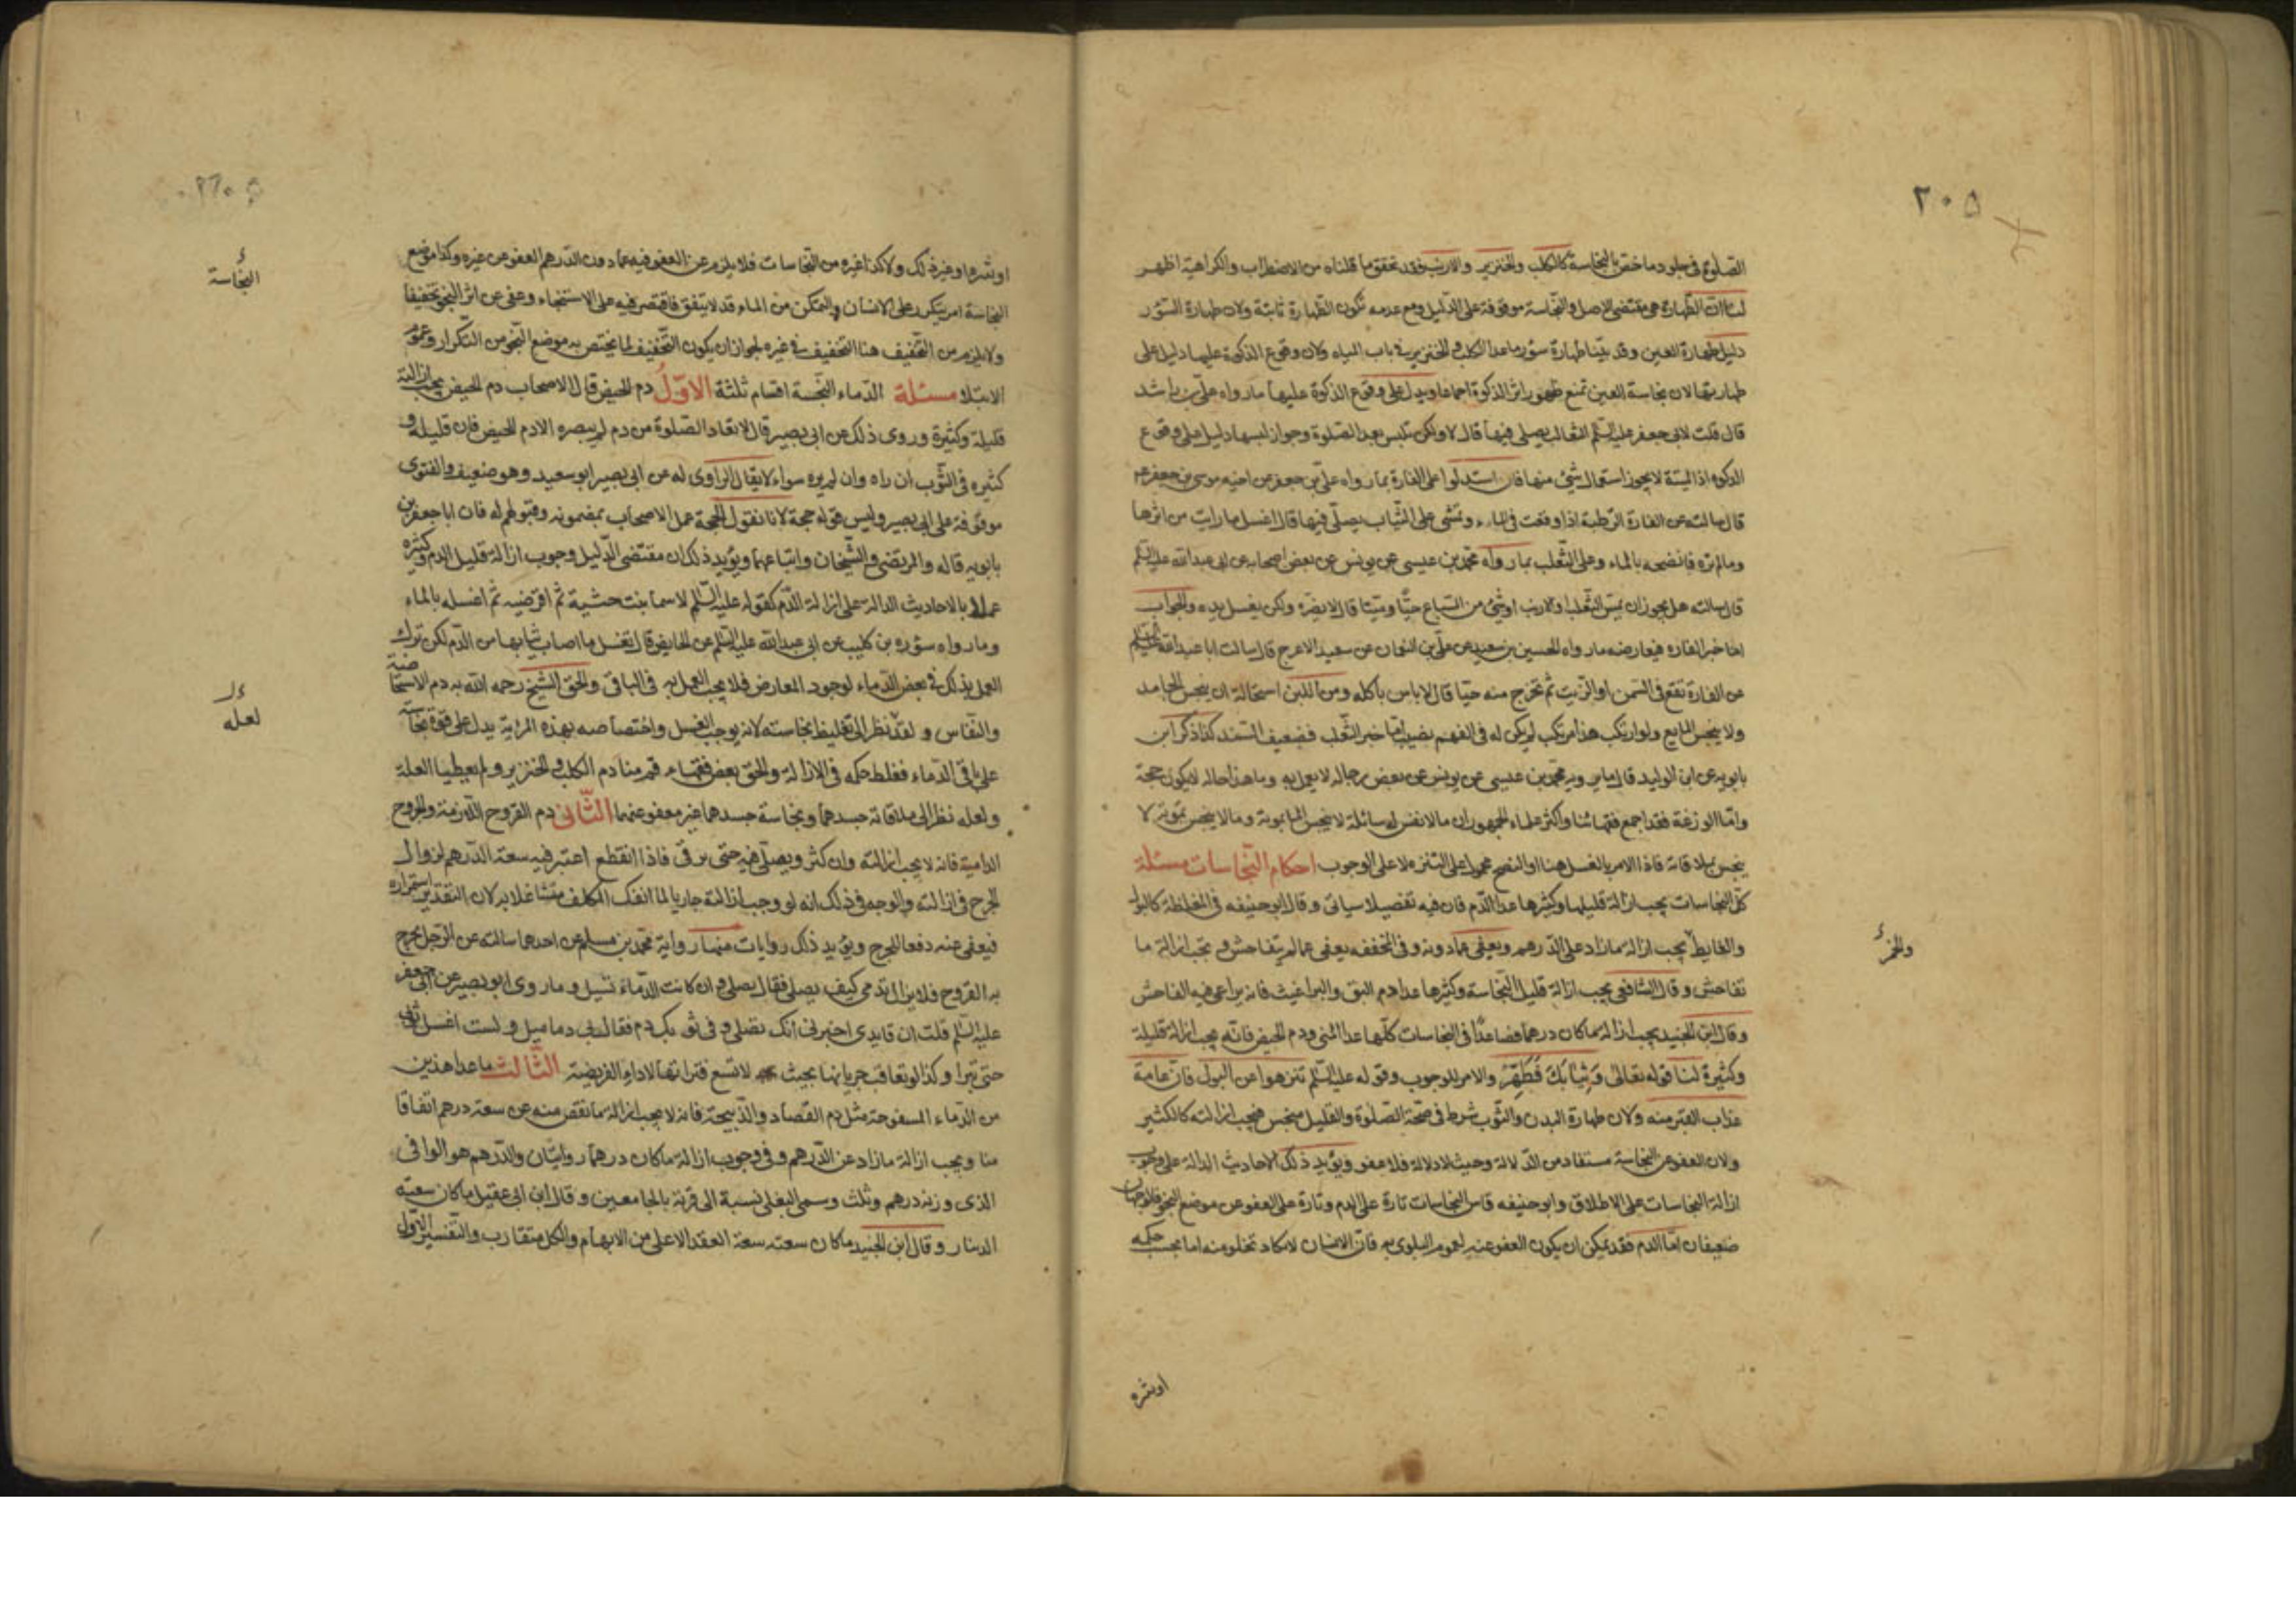 ٢٠٥
الصلوة فى جلود ما خص بالنجاسة كالكلب والخنزير والارنب فقد تحقق ما قلناه من الاضطراب والكراهية اظهر
لنا ان الطهارة هى مقتضى الاصل والنجاسة موقوفة على الدليل ومع عدمه تكون الطهارة ثابتة ولان طهارة السؤر
دليل طهارة العين وقد بيّنا طهارة سؤر ما عدا الكلب والخنزير فى باب المياه ولان وقوع الذكوة عليها دليل على
طهارتها لان نجاسة العين تمنع ظهور اثر الذكوة اجماعا ويدل على وقوع الذكوة عليها ما رواه علىّ بن راشد
قال قلت لابى جعفر عليه السّلم الثعالب يصلى فيها قال لا ولكن تلبس بعد الصّلوة وجواز لبسها دليل على وقوع
الذكوه اذ الميتة لا يجوز استعمال شئ منها فان استدلوا على الفارة بما رواه علىّ بن جعفر عن اخيه موسى بن جعفر عم
قال سالته عن الفارة الرّطبة اذا وقعت فى الماء وتمشى على الثّياب يصلّى فيها قال اغسل ما رايت من اثرها
وما لم تره فانضحه بالماء وعلى الثّعلب بما رواه محمّد بن عيسى عن يونس عن بعض اصحابه عن ابى عبد الله عليه السّلم
قال سالته هل يجوز ان يمسّ الثعلب والارنب او شئ من السّباع حيّا وميّتا قال لا يضرّه ولكن يغسل يده والجواب
اما خبر الفاره فيعارضه ما رواه الحسين بن سعيد عن علىّ بن النعمان عن سعيد الاعرج قال سالت ابا عبد الله عليه السّلم
عن الفارة تقع فى السّمن او الزّيت ثم تخرج منه حيّا قال لا باس باكله ومن البيّن استحالة ان ينجس الجامد
ولا ينجس المايع ولو ارتكب هذا مرتكب لم يكن له فى الفهم نصيب امّا خبر الثّعلب فضعيف السّند كذا ذكر ابن
بابويه عن ابن الوليد قال ما يرويه محمّد بن عيسى عن يونس عن بعض رجاله لا يعمل به وما هذا حاله لا يكون حجة
وامّا الوزغة فقد اجمع فقهائنا واكثر علماء الجمهور ان ما لا نفس له سائلة لا ينجس الماء بموته وما لا ينجس بموته لا
ينجس بملاقاته فاذا الامر بالغسل هنا او النضح محمول على التنزه لا على الوجوب احكام النّجاسات مسئلة
كلّ النجاسات يجب ازالة قليلها وكثيرها عدا الدّم فان فيه تفصيلا سياتى وقال ابو حنيفه فى المغلظة كالبول
والغايط يجب ازاله ما زاد على الدّرهم ويعفى عمّا دونه وفى المخفف يعفى عما لم يتفاحش ويجب ازالة ما
والخمر
تفاحش وقال الشافعى يجب ازالة قليل النّجاسة وكثيرها عدا دم البق والبراغيث فانه يراعى فيه الفاحش
وقال ابن الجنيد يجب ازالة ما كان درهما فصاعدًا فى النجاسات كلّها عدا المنى ودم الحيض فانّه يجب ازالة قليلة
وكثيرة لنا قوله تعالى وَثِيَابَكَ فَطَهِّرْ والامر للوجوب وقوله عليه السّلم تنزهوا من البول فانّ عامة
عذاب القبر منه ولان طهارة البدن والثّوب شرط فى صحّة الصّلوة والقليل منجس فيجب ازالته كالكثير
ولان العفو عن النجاسة مستفاد من الدّلالة وحيث لا دلالة فلا عفو ويؤيد ذلك الاحاديث الدالة على وجوب
ازالة النجاسات على الاطلاق وابو حنيفه قاس النجاسات تارة على الدم وتارة على العفو عن موضع النجو والوجهان
ضعيفان امّا الدم فقد يمكن ان يكون العفو عنه لعموم البلوى به فانّ الانسان لا يكاد تخلو منه اما بحسب حكه
او بثره
او بثره او غير ذلك ولا كذا غيره من النّجاسات فلا يلزم من العفو فيه عمّا دون الدّرهم العفو عن غيره وكذا موضع
النجاسة
النجاسة امر يتكرر على الانسان والتمكن من الماء قد لا يتفق فاقتصر فيه على الاستنجاء وعفى عن اثر النجو تخفيفا
ولا يلزم من التّخفيف هنا التخفيف فى غيره لجواز ان يكون التّخفيف لما يختص به موضع النّجو من التّكرار وعموم
الابتلا مسئلة الدّماء النّجسة اقسام ثلثة الاوّل دم الحيض قال الاصحاب دم الحيض يجب ازالة
قليلة وكثيرة وروى ذلك عن ابى بصير قال لا تعاد الصّلوة من دم لم يبصره الا دم الحيض فان قليله و
كثيره فى الثّوب ان راه وان لم يره سواء لا يقال الراوى له عن ابى بصير ابو سعيد وهو ضعيف والفتوى
موقوفة على ابى بصير وليس قوله حجة لانا نقول الحجة عمل الاصحاب بمضمونه وقبولهم له فان ابا جعفر بن
بابويه قاله والمرتضى والشّيخان واتباعهما ويؤيد ذلك ان مقتضى الدّليل وجوب ازالة قليل الدم وكثيره
عملا بالاحاديث الدالة على ازالة الدّم كقوله عليه السّلم لاسما بنت حثيه ثم اقرضيه ثم اغسله بالماء
وما رواه سوره بن كليب عن ابى عبد الله عليه السّلم عن الحايض قال تغسل ما اصاب ثيابها من الدّم لكن ترك
العمل بذلك فى بعض الدّماء لوجود المعارض فلا يجب العمل به فى الباقى والحق الشيخ رحمه الله به دم الاستحاضة
لعله
والنّفاس و لعلّه نظر الى تغليظ نجاسته لانه يوجب الغسل واختصاصه بهذه المزية يدل على قوة نجاسته
على باقى الدّماء فغلظ حكمه فى الازالة والحق بعض فقهاء قم منا دم الكلب والخنزير ولم يعطيا العلة
ولعله نظر الى ملاقاته جسدهما ونجاسة جسدهما غير معفو عنها الثّانى دم القروح اللّازمة والجروح
الدامية فانه لا يجب ازالته وان كثر ويصلّى فيه حتى يرقى فاذا انقطع اعتبر فيه سعة الدّرهم لزوال
الحرج فى ازالته والوجه فى ذلك انه لو وجب ازالته جاريا لما انفك المكلف متشاغلا به لان التقدير استمراره
فيعفى عنه دفعا للحرج ويؤيد ذلك روايات منها رواية محمّد بن مسلم عن احدهما سالته عن الرّجل يخرج
به القروح فلا يزال تدمى كيف يصلى فقال يصلى وان كانت الدّماء تسيل وما روى ابو بصير عن ابى جعفر
عليه السّلم قلت ان قايدى اخبرنى انك تصلى وفى ثوبك دم فقال بى دماميل ولست اغسل ثوبى
حتى تبرا وكذا لو تعاقب جريانها بحيث لا تسع فتراتها لاداء الفريضة الثّالث ما عدا هذين
من الدّماء المسفوحة مثل دم الفصاد والذّبيحة فانه لا يجب ازالة ما نقص منه عن سعة درهم اتفاقا
منا ويجب ازالة ما زاد عن الدّرهم وفى وجوب ازالة ما كان درهما روايتان والدّرهم هو الوافى
الذى وزنه درهم وثلث وسمى البغلى نسبة الى قرية بالجامعين وقال ابن ابى عقيل ما كان سعته
الدينار وقال ابن الجنيد ما كان سعته سعة العقد الاعلى من الابهام والكل متقارب والتّفسير الاوّل